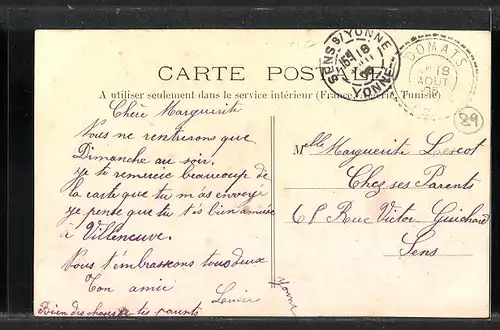 CARTE POSTALE
A utiliser seulement dans le service intérieur (France, Algérie, Tunisie)
SENS S/YONNE
YONNE
18
DOMATS
18
AOUT
89
Chère Marguerite
Nous ne rentrerons que
Dimanche au soir.
je ti remercie beaucoup de
la carte que tu m'as envoyé
je pense que tu t'is bien amusée
à Villeneuve.
Nous t'embrassons tous deux
Ton amie
Lucie
Bien des choses à tes parents
Melle Marguerite Lescot
Chez ses Parents
61 Rue Victor Guichard
Sens
Yonne